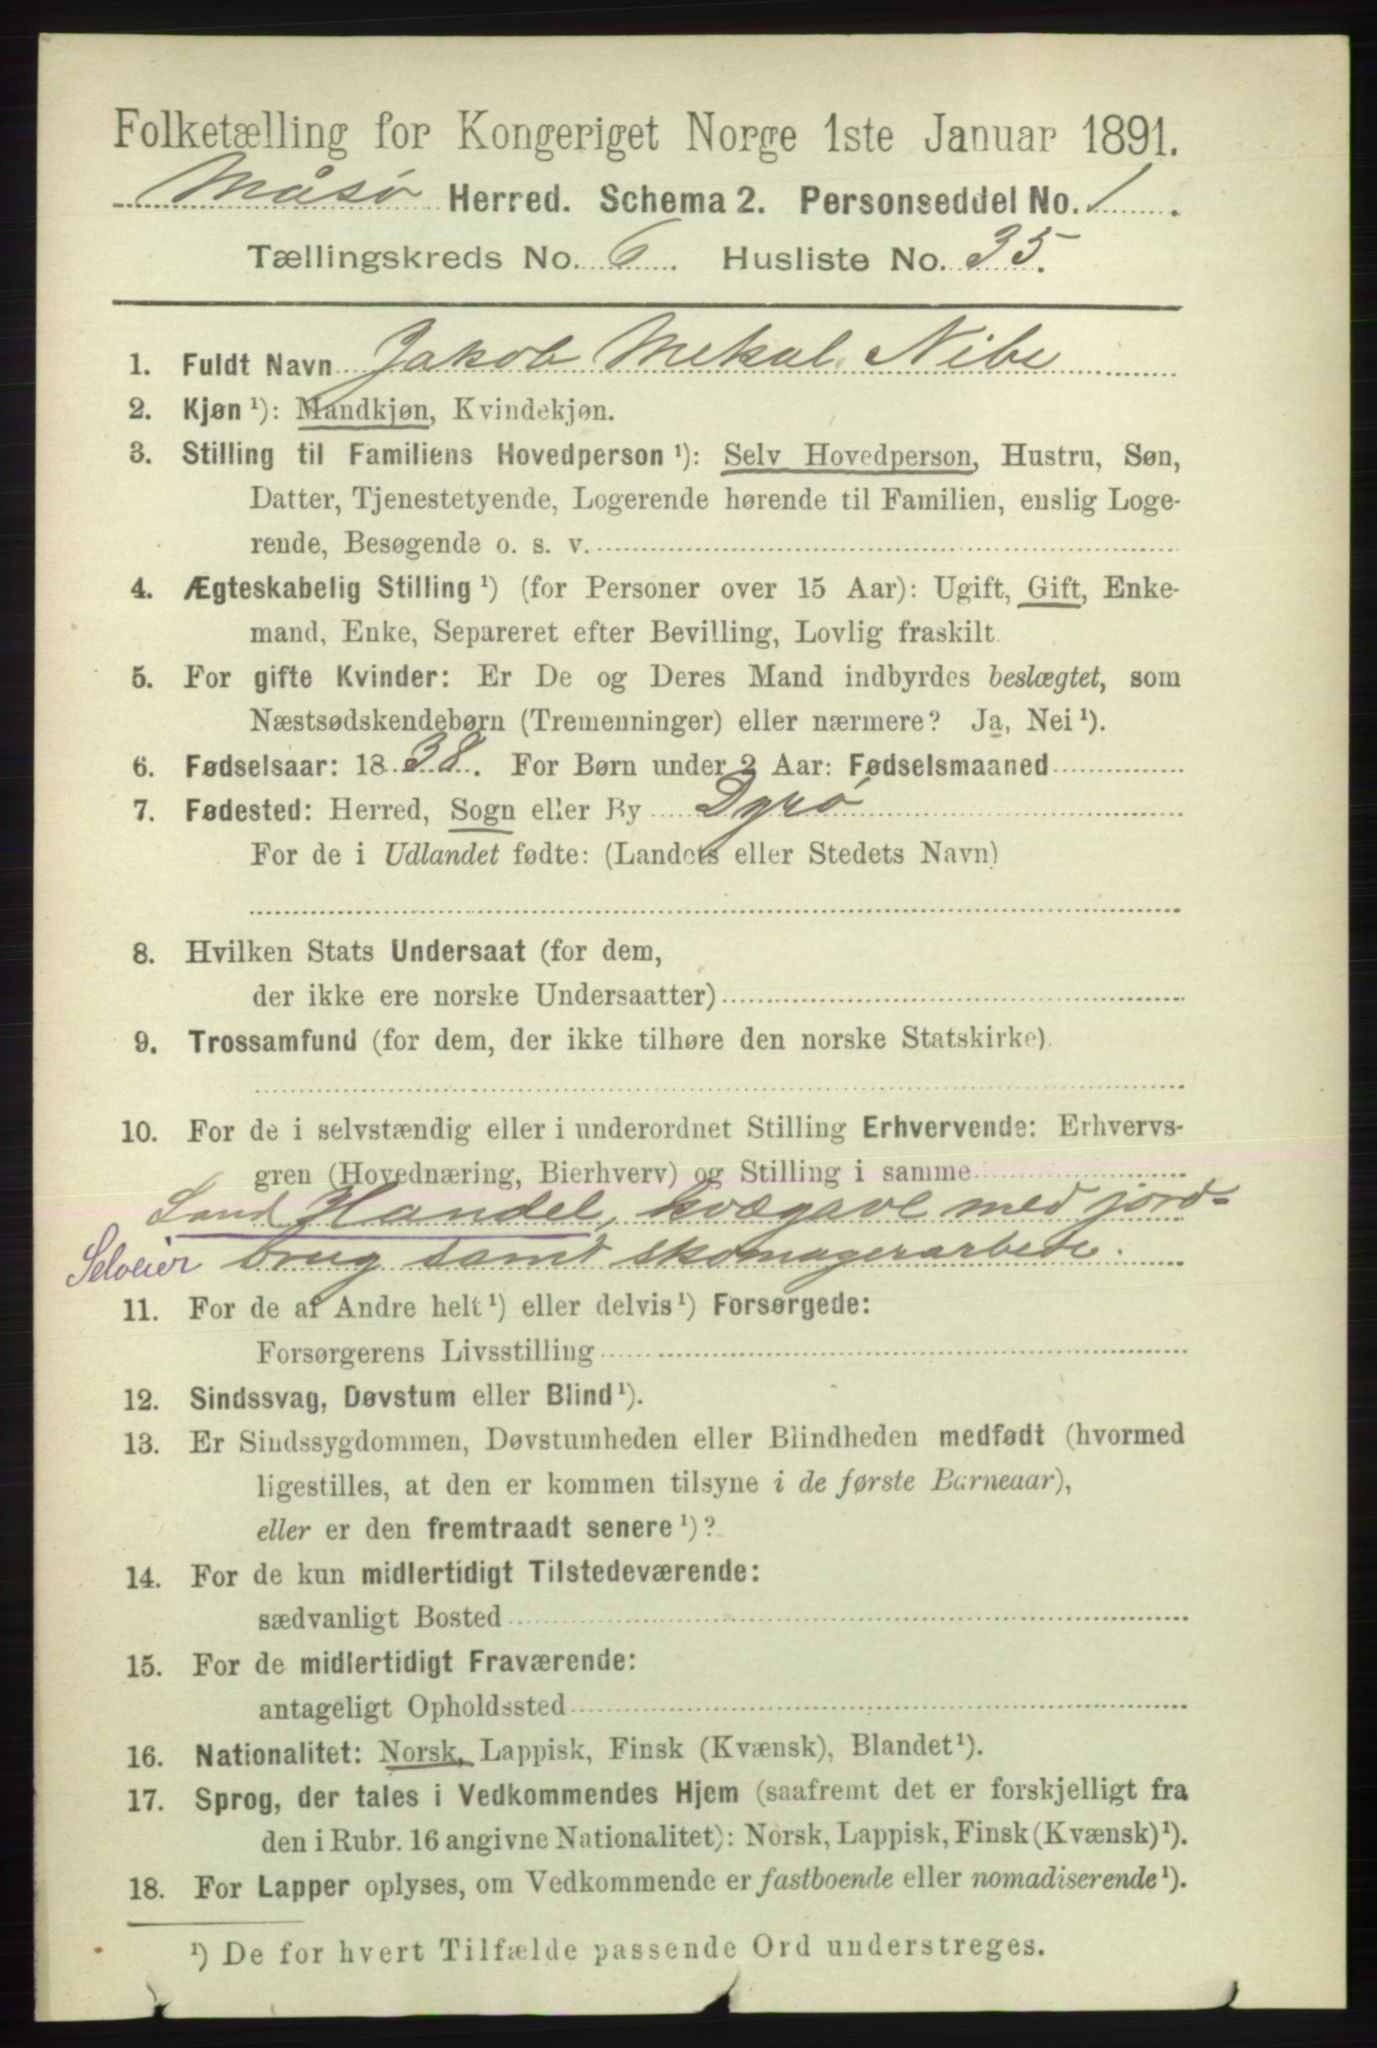 Folketælling for Kongeriget Norge 1ste Januar 1891.
Måsø Herred. Schema 2. Personseddel No. 1.
Tællingskreds No. 6. Husliste No. 35.
1. Fuldt Navn Jakob Mekal Nibe
2. Kjøn ¹): Mandkjøn, Kvindekjøn.
3. Stilling til Familiens Hovedperson ¹): Selv Hovedperson, Hustru, Søn,
Datter, Tjenestetyende, Logerende hørende til Familien, enslig Loge-
rende, Besøgende o. s. v.
4. Ægteskabelig Stilling ¹) (for Personer over 15 Aar): Ugift, Gift, Enke-
mand, Enke, Separeret efter Bevilling, Lovlig fraskilt
5. For gifte Kvinder: Er De og Deres Mand indbyrdes beslægtet, som
Næstsødskendebørn (Tremenninger) eller nærmere? Ja, Nei ¹).
6. Fødselsaar: 1838. For Børn under 2 Aar: Fødselsmaaned
7. Fødested: Herred, Sogn eller By Dyrö
For de i Udlandet fødte: (Landets eller Stedets Navn)
8. Hvilken Stats Undersaat (for dem,
der ikke ere norske Undersaatter)
9. Trossamfund (for dem, der ikke tilhøre den norske Statskirke)
10. For de i selvstændig eller i underordnet Stilling Erhvervende: Erhvervs-
gren (Hovednæring, Bierhverv) og Stilling i samme
Land Handel, kvægavl med jord-
Selveier brug samt skomagerarbede.
11. For de af Andre helt ¹) eller delvis ¹) Forsørgede:
Forsørgerens Livsstilling
12. Sindssvag, Døvstum eller Blind ¹).
13. Er Sindssygdommen, Døvstumheden eller Blindheden medfødt (hvormed
ligestilles, at den er kommen tilsyne i de første Barneaar),
eller er den fremtraadt senere ¹)?
14. For de kun midlertidigt Tilstedeværende:
sædvanligt Bosted
15. For de midlertidigt Fraværende:
antageligt Opholdssted
16. Nationalitet: Norsk, Lappisk, Finsk (Kvænsk), Blandet ¹).
17. Sprog, der tales i Vedkommendes Hjem (saafremt det er forskjelligt fra
den i Rubr. 16 angivne Nationalitet): Norsk, Lappisk, Finsk (Kvænsk) ¹).
18. For Lapper oplyses, om Vedkommende er fastboende eller nomadiserende ¹).
¹) De for hvert Tilfælde passende Ord understreges.